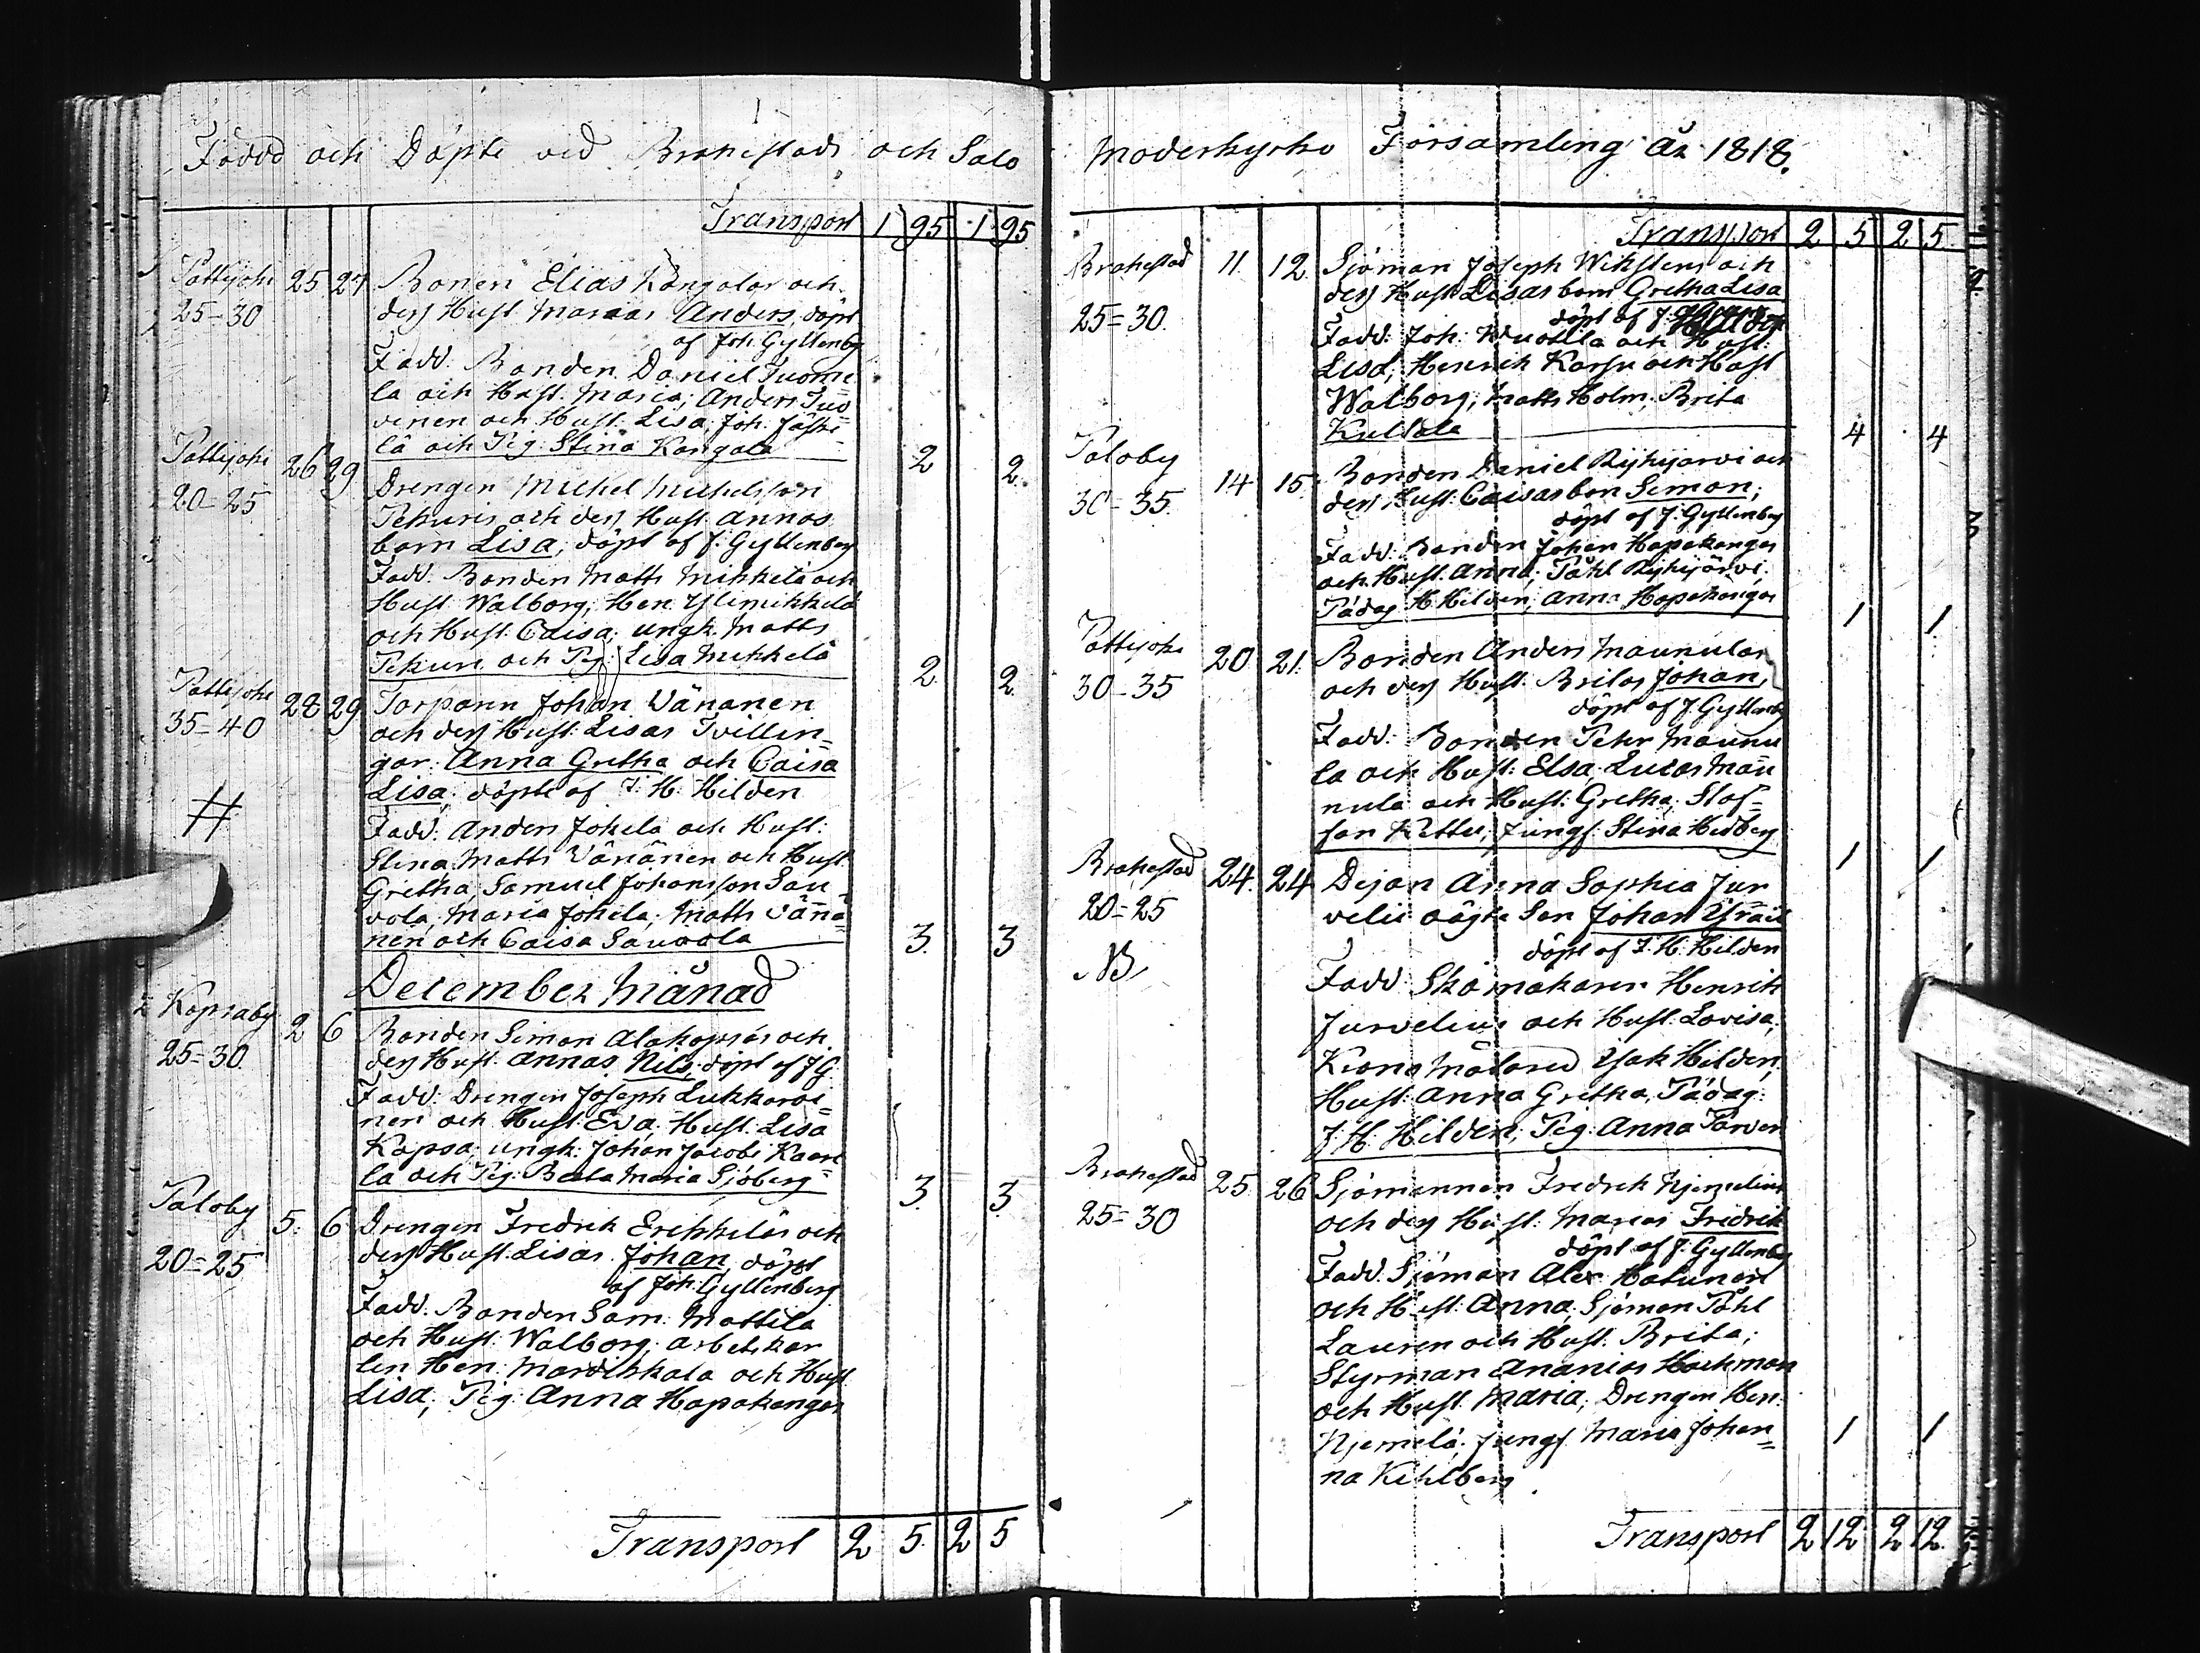 Född och Döpte vid Brahestads och Salo
Transport 1 95 1 95
Pattijoki 25 27 Bonen Elias Kangalas och
25=30 dess Hust. Marias Anders, döpt
af Joh. Gyllenbg
Fadd. Bonden Daniel Tuome
la och Hust. Maria; Anders Tuo
vinen och Hust. Lisa, Joh.
lä och Pig. Stina Kangala 2 2
Pattijoki 26 29 Drengen Michel Michelsson
20=25 Pekuris och dess Hust. Annas
barn Lisa, döpt af J. Gyllenberg
Fadd. Bonden Matts Mikkelä och
Hust. Walborg, Hen. Ylimikkelä
och Hust. Caisa; ungk. Matts
Pekuri och Pig. Lisa Mikkelä 2 2
Pattijoki 28 29 Torparn Johan Vänänen
35=40 och dess Hust. Lisas Tvillin=
gar Anna Gretha och Caisa
Lisa; döpte af J. H. Hilden
# Fadd. Anders Jokela och Hust:
Stina, Matts Vänänen och Hust
Gretha, Samuel Johansson Sau=
vola, Maria Jokela; Matts Vänä=
nen och Caisa Sauvola 3 3
December Månad
Kopsaby 2 6 Bonden Simon Alakopsas och
25=30 dess Hust. Annas Nils, döpt af J G
Fadd: Drengen Joseph Lukkaroi=
nen och Hust Eva Hust. Lisa
Kopsa; ungk: Johan Jacobs Kaare
la och Pig. Beata Maria Sjöberg 3 3
Paloby 5. 6 Drengen Fredrik Erkkiläs och
20=25 dess Hust. Lisas Johan, döpt
af Joh. Gyllenberg
Fadd. Bonden Sam. Mattila
och Hust. Walborg; arbetskar
len Hen: Mardikkala och Hust
Lisa; Pig. Anna Hapakangas
Transport 2 5. 2 5
Moderkyrko Församling År 1818.
Transport 2 5 2 5.
Brahestad 11. 12. Sjöman Joseph Wikstens och
25=30. dess Hust. Lisas barn Gretha Lisa
döpt af J.
Fadd. Joh. Wuotila och Hust:
Lisa, Henrik Karsu och Hust
Walborg; Matts Holm, Brita
4 4
Paloby 14 15. Bonden Daniel Ryhijarvi och
30-35. dess Hust: Caisas barn Simon;
döpt af J. Gyllenbg
Fadd. Bonden Johan Hapakangas
och Hust. Anna; Påhl Ryhijärvi,
Pädag. H. Hilden, Anna Hapakangas 1 1.
Pattijoki 20 21. Bonden Anders Maunulas
30-35 och dess Hust. Britas Johan,
döpt af J. Gyllenbg
Fadd: Bonden Peter Maunu
la och Hust: Elsa, Lucas Mau
nula och Hust: Gretha; Slaf=
san Kettu; Jungf: Stina Hedberg 1 1
Brahestad 24. 24 Dejan Anna Sophia Jur
20=25 velii oägta Son Johan
döpt af J. H. Hilden
NB Fadd. Skomakaren Henrik
Jurvelius och Hust. Lovisa;
Krono Isak Hilden,
Hust: Anna Gretha, Pädag:
J. H. Hilden; Pig. Anna
Brahestad 25. 26 Sjömannen Fredrik Njemelius
25=30 och dess Hust. Marias Fredrik
döpt af J. Gyllenbg
Fadd. Sjöman Alex Hatunen
och Hust: Anna; Sjöman Påhl
Lauren och Hust. Brita;
Styrman Ananias Hackman
och Hust. Maria; Drengen Hen.
Njemelä; Jungf Maria Johan= 1 1
na Kihlberg
Transport 2 12 2 12.